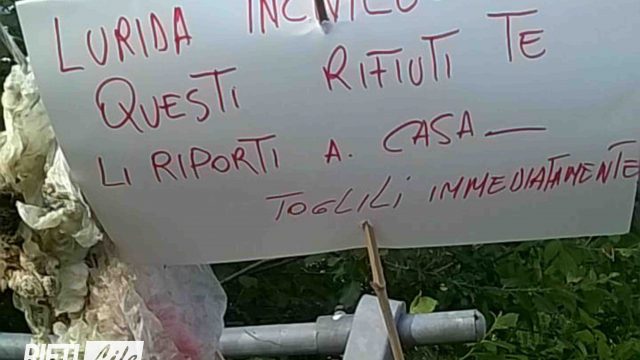 LURIDA INCIVILE
QUESTI RIFIUTI TE
LI RIPORTI A. CASA—
TOGLILI IMMEDIATAMENTE
RIETI Life